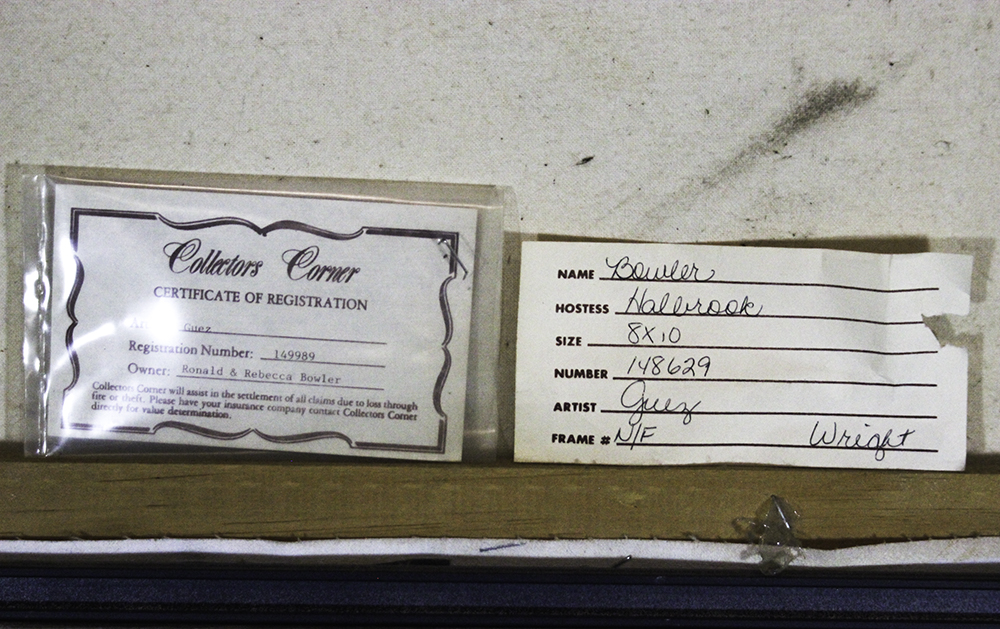 Collectors Corner
CERTIFICATE OF REGISTRATION
Guez
Registration Number: 149989
Owner: Ronald & Rebecca Bowler
Collectors Corner will assist in the settlement of all claims due to loss through
fire or theft. Please have your insurance company contact Collectors Corner
directly for value determination.
NAME Bowler
HOSTESS Halbrook
SIZE 8X10
NUMBER 148629
ARTIST Guez
FRAME # N/F Wright